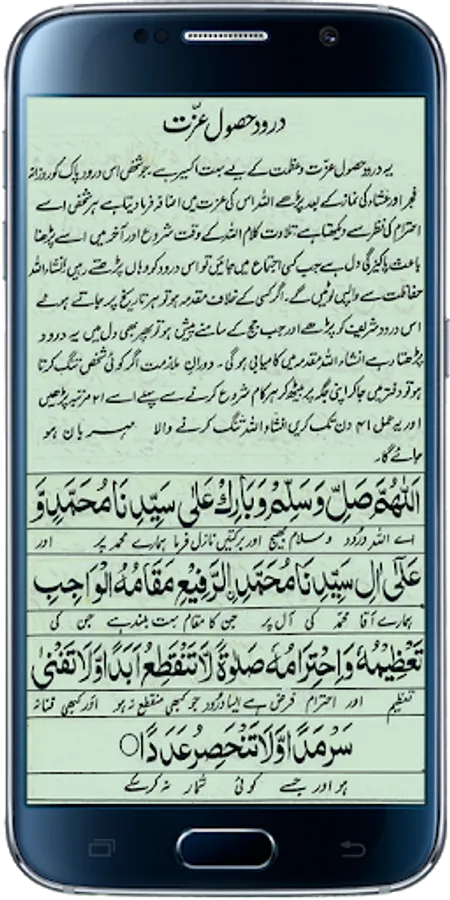 درود حصول عزّت
یہ درود حصول عزّت و عظمت کے لیے بہت اکسیر ہے ۔ جو شخص اس درود پاک کو روزانہ
فجر اور عشاء کی نماز کے بعد پڑھے اللہ اس کی عزت میں اضافہ فرما دیتا ہے ہر شخص اسے
احترام کی نظر سے دیکھتا ہے تلاوت کلام اللہ کے وقت شروع اور آخر میں اسے پڑھنا
باعث پاکیزگی دل ہے جب کسی اجتماع میں جائیں تو اس درود کو وہاں پڑھتے رہیں انشاء اللہ
حفاظت سے واپس لوٹیں گے ۔ اگر کسی کے خلاف مقدمہ ہو تو ہر تاریخ پر جاتے ہوئے
اس درود شریف کو پڑھے اور جب جج کے سامنے پیش ہو تو پھر بھی دل میں یہ درود
پڑھتا رہے انشاء اللہ مقدمہ میں کامیابی ہوگی ۔ دوران ملازمت اگر کوئی شخص تنگ کرتا
ہو تو دفتر میں جا کر اپنی جگہ پر بیٹھ کر ہر کام شروع کرنے سے پہلے اسے ۲۱ مرتبہ پڑھیں
اور یہ عمل ۴۱ دن تک کریں انشاء اللہ تنگ کرنے والا مہربان ہو
جائے گا ۔
اَللّٰهُمَّ صَلِّ وَسَلِّمْ وَبَارِكْ عَلٰى سَيِّدِنَا مُحَمَّدٍ وَّ
اے اللہ درود و سلام بھیج اور برکتیں نازل فرما ہمارے محمد پر اور
عَلٰٓى اٰلِ سَيِّدِنَا مُحَمَّدِ ۨالرَّفِيْعِ مَقَامُهُ الْوَاجِبِ
ہمارے آقا محمد کی آل پر جن کا مقام بہت بلند ہے جن کی
تَعْظِيْمُهٗ وَاحْتِرَامُهٗ صَلٰوةً لَا تَنْقَطِعُ اَبَدًا وَّلَا تَفْنٰى
تعظیم اور احترام فرض ہے ایسا درود جو کبھی منقطع نہ ہو اور کبھی فنا نہ
سَرْمَدًا وَّلَا تَنْحَصِرُ عَدَدًا ○
ہو اور جسے کوئی شمار نہ کر سکے